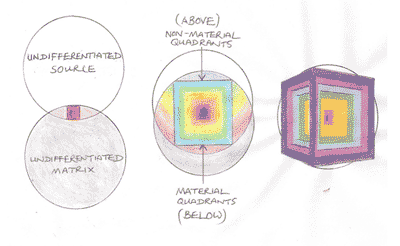 UNDIFFERENTIATED
SOURCE
UNDIFFERENTIATED
MATRIX
(ABOVE)
NON-MATERIAL
QUADRANTS
MATERIAL
QUADRANTS
(BELOW)